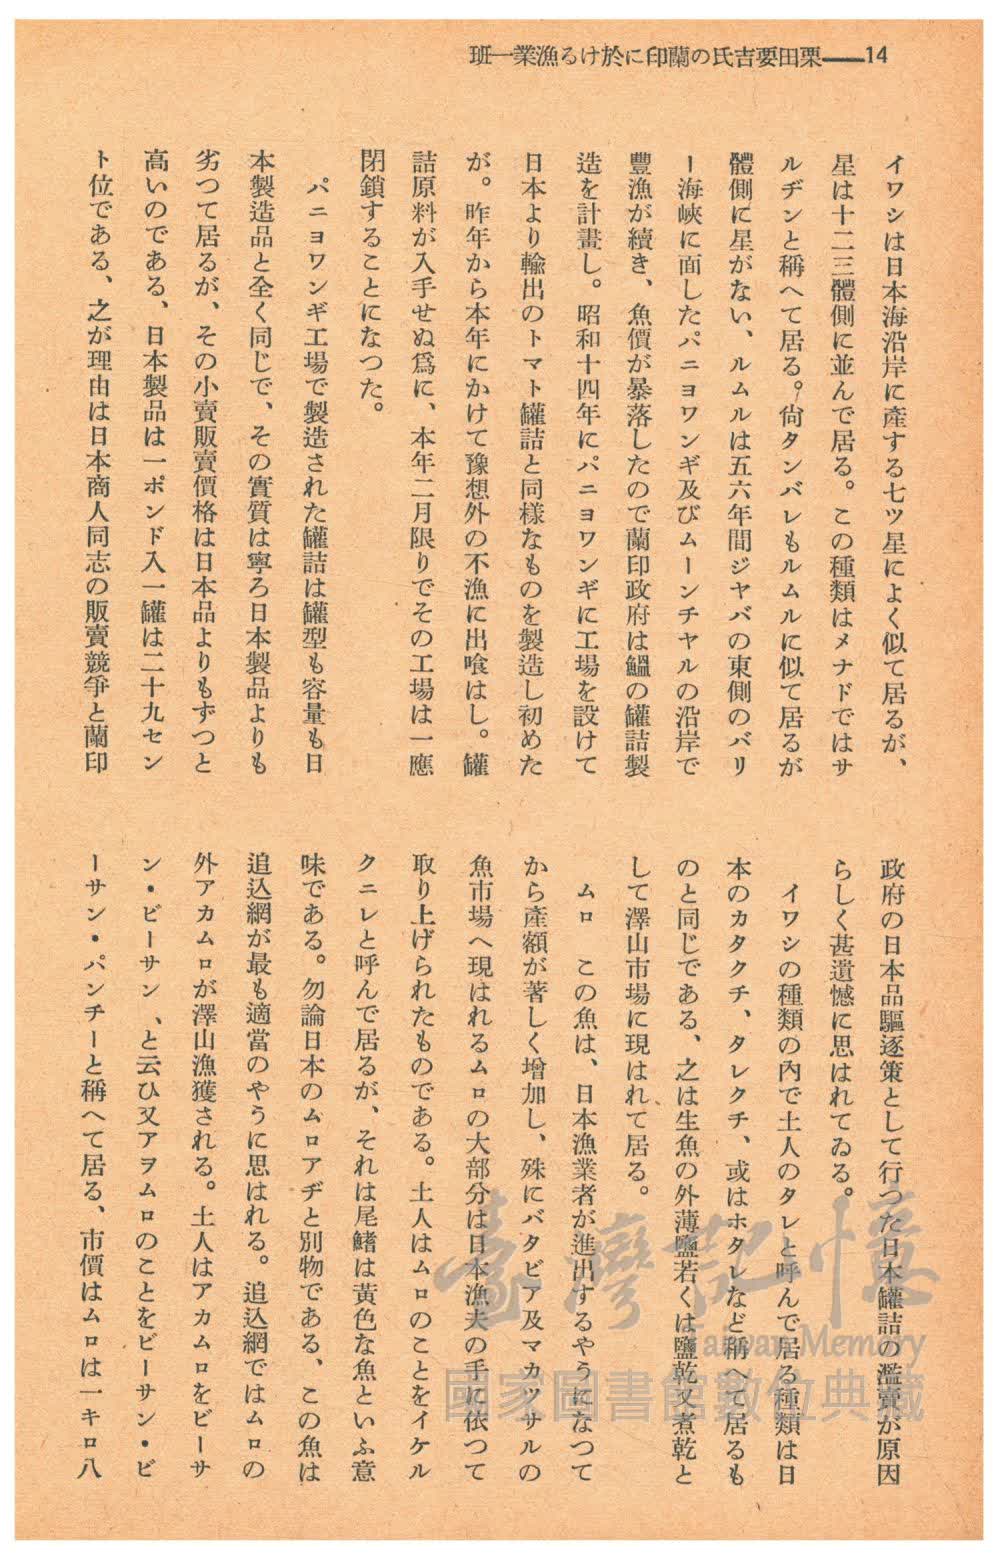 14——栗田要吉氏の蘭印に於ける漁業一班
イワシは日本海沿岸に產する七ツ星によく似て居るが、
星は十二三體側に並んで居る。この種類はメナドではサ
ルヂンと稱へて居る。尙タンバレもルムルに似て居るが
體側に星がない、ルムルは五六年間ジヤバの東側のバリ
ー海峽に面したパニヨワンギ及びムーンチヤルの沿岸で
豐漁が續き、魚價が暴落したので蘭印政府は鰮の罐詰製
造を計畫し。昭和十四年にパニヨワンギに工場を設けて
日本より輸出のトマト罐詰と同樣なものを製造し初めた
が。昨年から本年にかけて豫想外の不漁に出喰はし。罐
詰原料が入手せぬ爲に、本年二月限りでその工場は一應
閉鎖することになつた。
パニヨワンギ工場で製造された罐詰は罐型も容量も日
本製造品と全く同じで、その實質は寧ろ日本製品よりも
劣つて居るが、その小賣販賣價格は日本品よりもずつと
高いのである、日本製品は一ポンド入一罐は二十九セン
ト位である、之が理由は日本商人同志の販賣競爭と蘭印
政府の日本品驅逐策として行つた日本罐詰の濫賣が原因
らしく甚遺憾に思はれてゐる。
イワシの種類の內で土人のタレと呼んで居る種類は日
本のカタクチ、タレクチ、或はホタレなど稱へて居るも
のと同じである、之は生魚の外薄鹽若くは鹽乾又煮乾と
して澤山市場に現はれて居る。
ムロ　この魚は、日本漁業者が進出するやうになつて
から產額が著しく增加し、殊にバタビア及マカツサルの
魚市場へ現はれるムロの大部分は日本漁夫の手に依つて
取り上げられたものである。土人はムロのことをイケル
クニレと呼んで居るが、それは尾鰭は黃色な魚といふ意
味である。勿論日本のムロアヂと別物である、この魚は
追込網が最も適當のやうに思はれる。追込網ではムロの
外アカムロが澤山漁獲される。土人はアカムロをビーサ
ン・ビーサン、と云ひ又アヲムロのことをビーサン・ビ
ーサン・パンチーと稱へて居る、市價はムロは一キロ八
臺灣記憶
Taiwan Memory
國家圖書館數位典藏